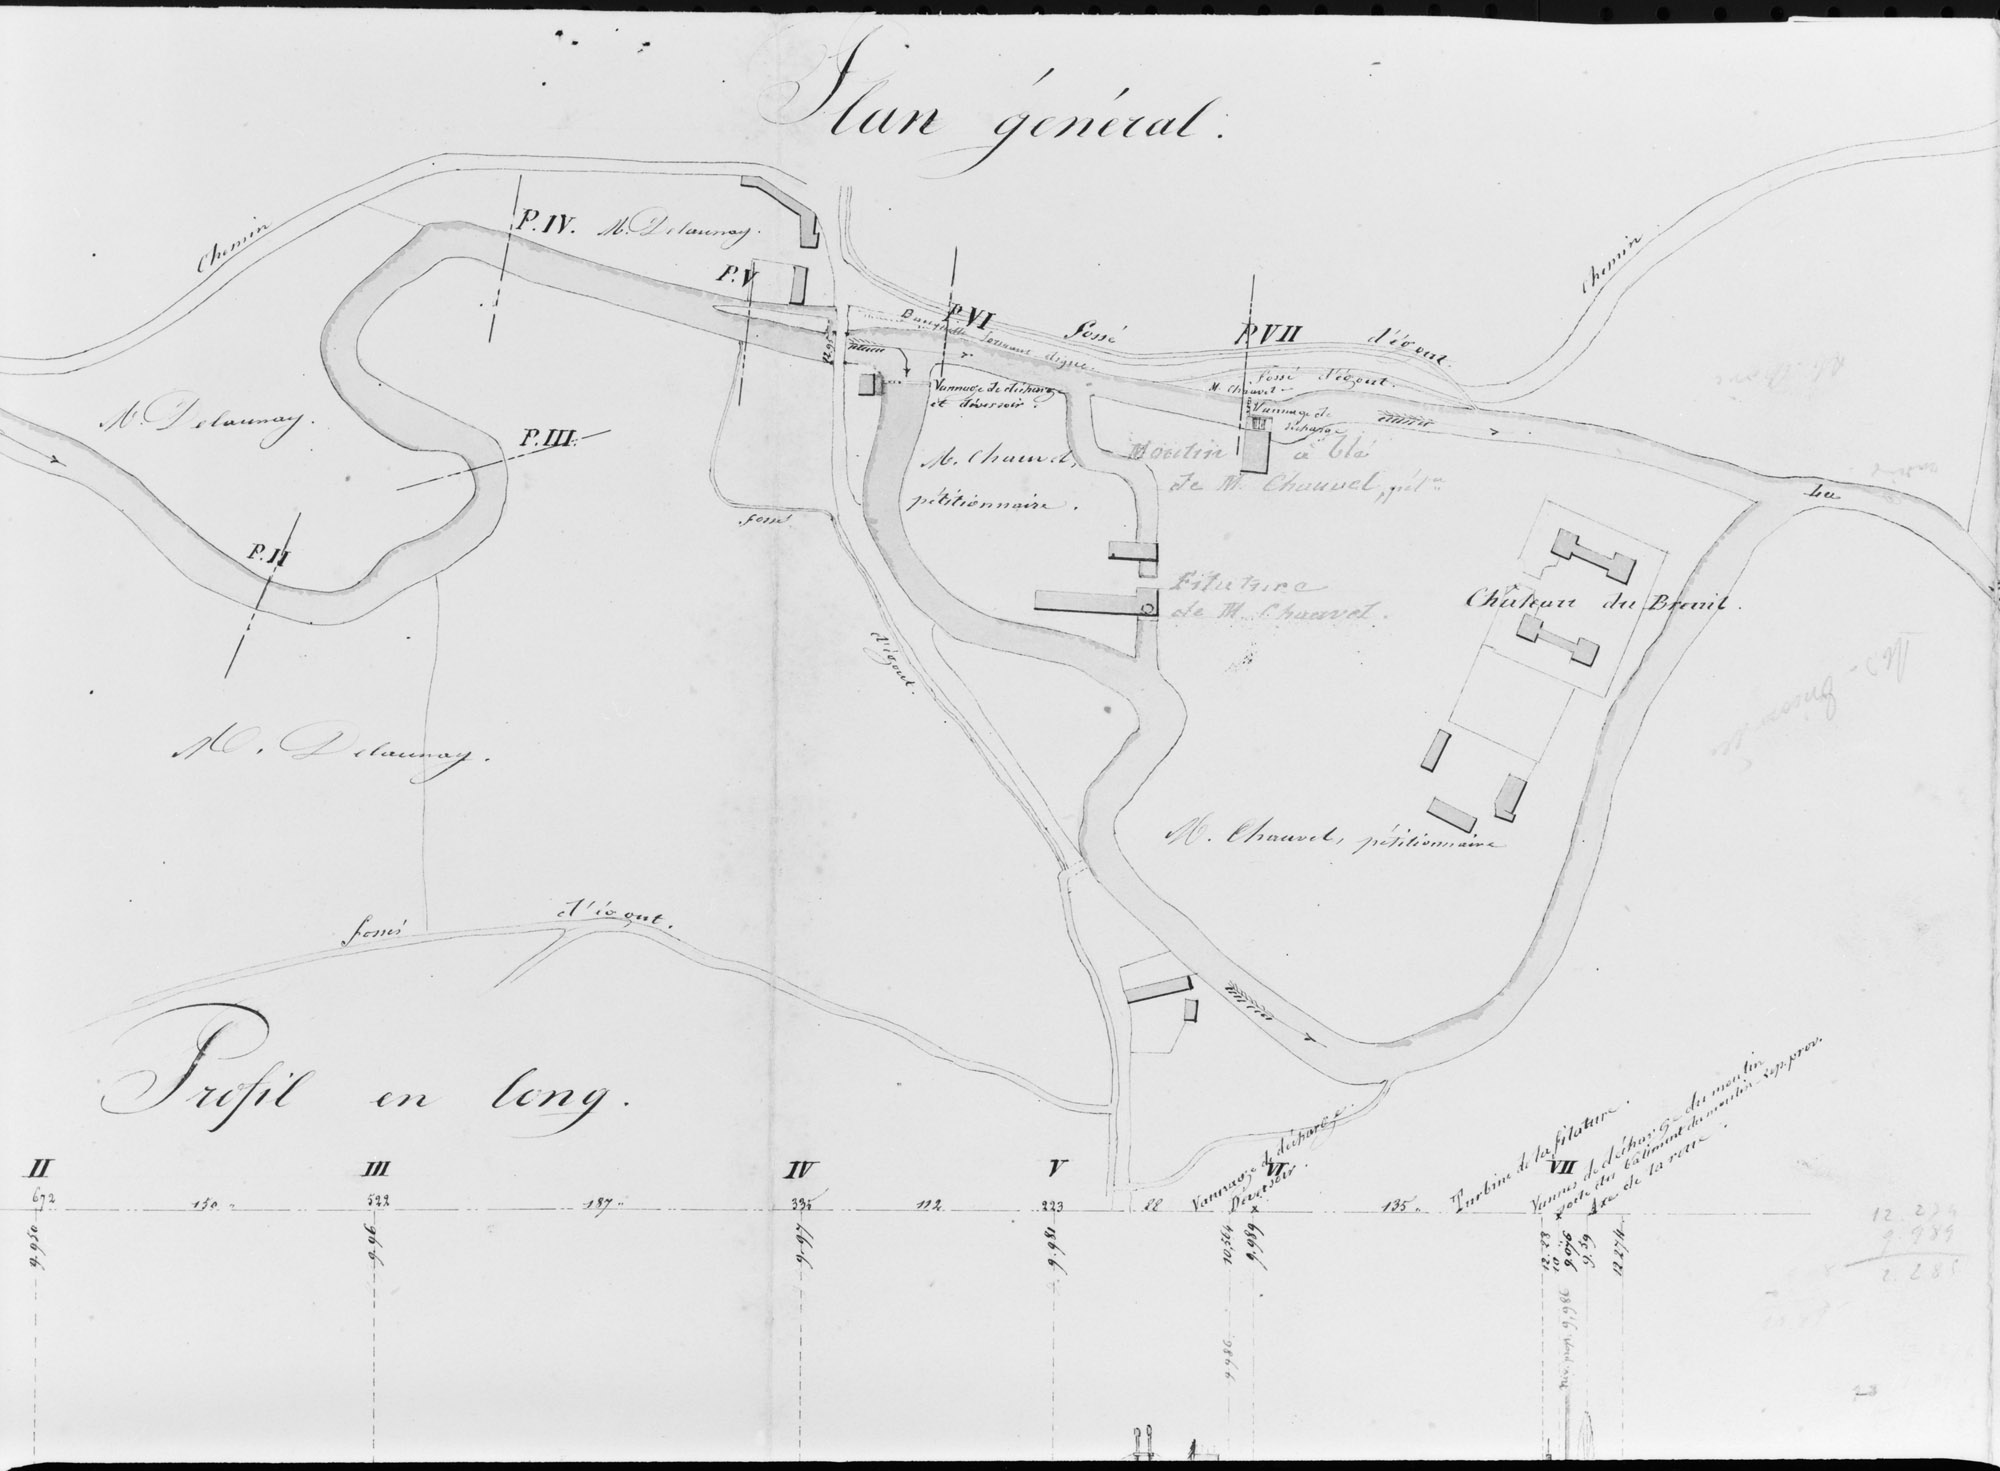 Plan général.
Chemin
P. IV.
M. Delaunay.
P. V
P. VI
fossé
P. VII
d'égout.
Chemin
Banquette formant digue.
fossé d'égout.
M. Chauvel
Vannage de
décharge
Vannage de décharge
et déversoir.
M. Delaunay.
P. III.
M. Chauvel,
pétitionnaire.
Moulin à blé
de M. Chauvel, pét.re
La
fossé
P. II
Filature
de M. Chauvel.
Château du Breuil.
d'égout.
M. Delaunay.
M. Chauvel, pétitionnaire
fossé d'égout.
Profil en long.
II III IV V VI VII
Vannage de décharge
Déversoir.
Turbine de la filature.
Vannes de décharge du moulin
Axe de la roue.
672 150 522 187 335 112 223 88 135
9.950
9.981
9.989
12.274
12.274
9.989
2.285